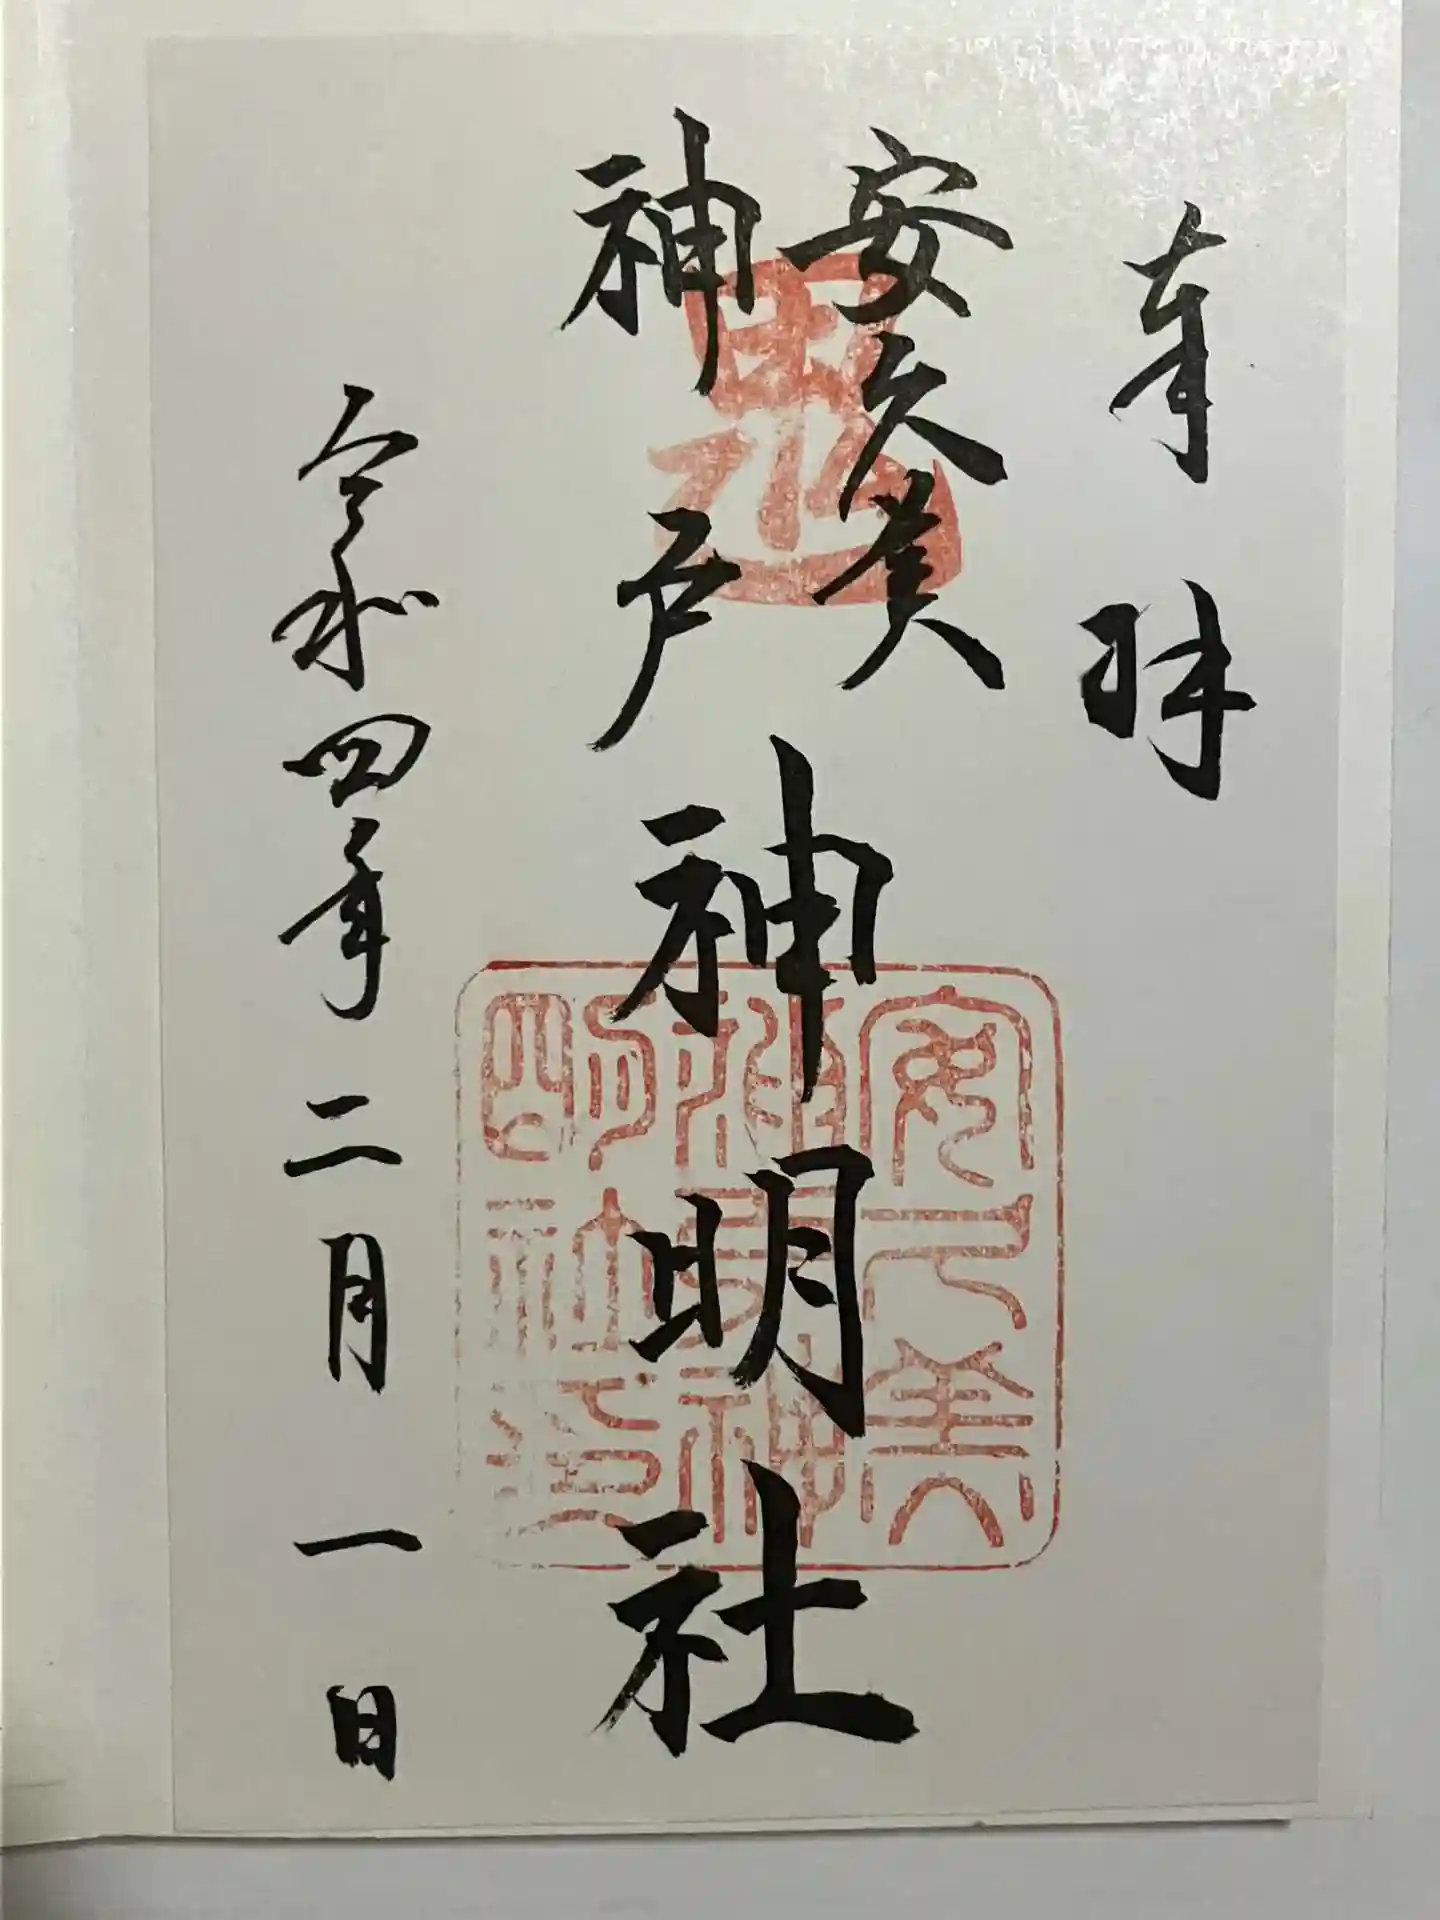 奉拝
安久美
神戸神明社
令和四年二月一日
安久美
神戸神
明社之
印